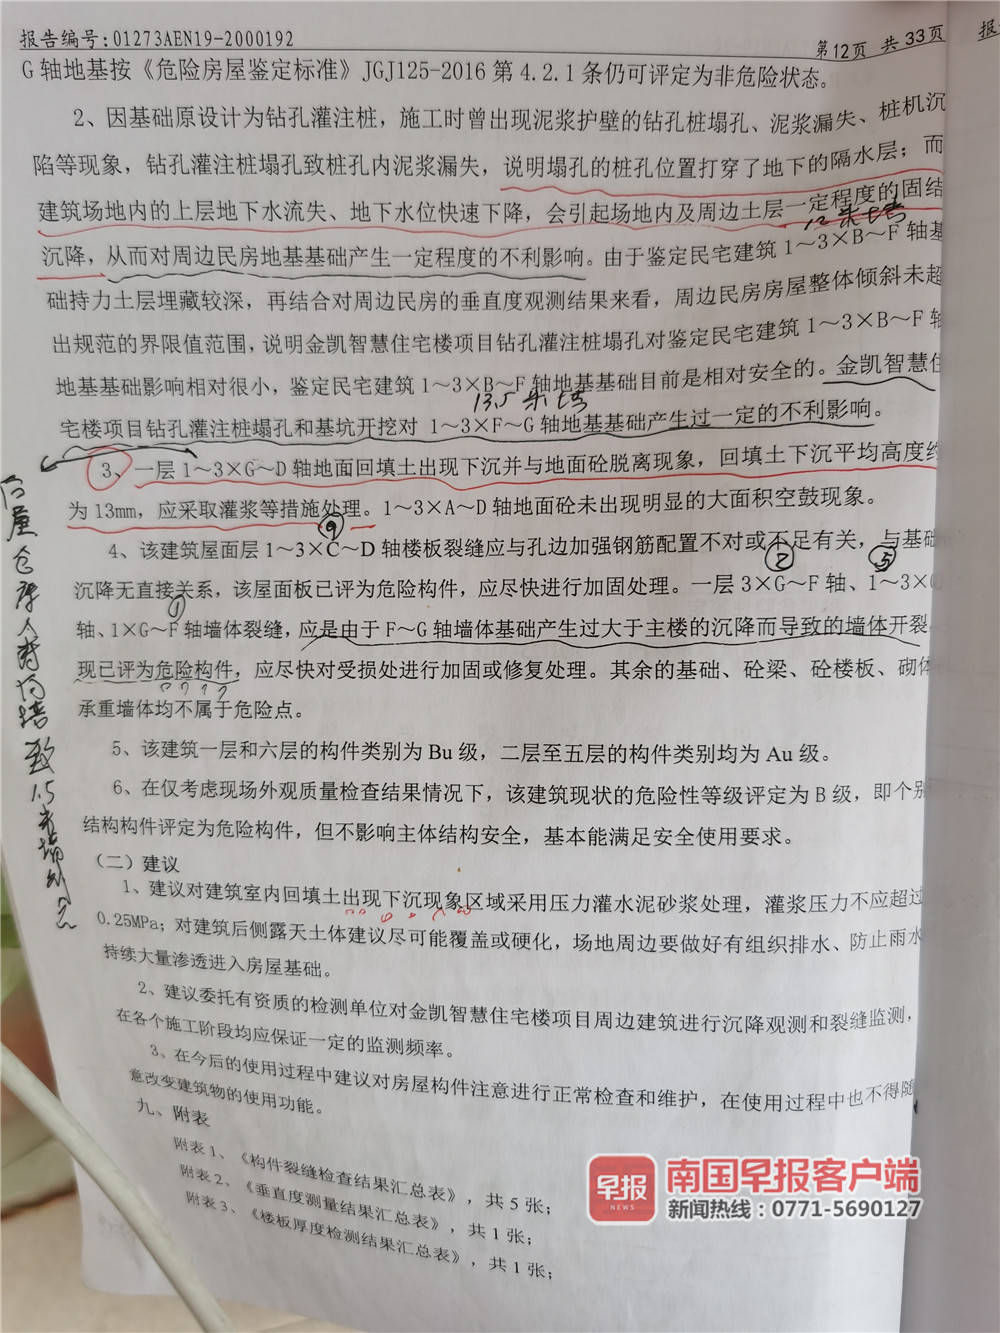 报告编号:01273AEN19-2000192
第12页 共33页
报
G轴地基按《危险房屋鉴定标准》JGJ125-2016第4.2.1条仍可评定为非危险状态。
2、因基础原设计为钻孔灌注桩，施工时曾出现泥浆护壁的钻孔桩塌孔、泥浆漏失、桩机沉
陷等现象，钻孔灌注桩塌孔致桩孔内泥浆漏失，说明塌孔的桩孔位置打穿了地下的隔水层；而
建筑场地内的上层地下水流失、地下水位快速下降，会引起场地内及周边土层一定程度的固结
沉降，从而对周边民房地基基础产生一定程度的不利影响。由于鉴定民宅建筑1～3×B～F轴基
础持力土层埋藏较深，再结合对周边民房的垂直度观测结果来看，周边民房房屋整体倾斜未超
出规范的界限值范围，说明金凯智慧住宅楼项目钻孔灌注桩塌孔对鉴定民宅建筑1～3×B～F轴
地基基础影响相对很小，鉴定民宅建筑1～3×B～F轴地基基础目前是相对安全的。金凯智慧住
13.5米
宅楼项目钻孔灌注桩塌孔和基坑开挖对 1～3×F～G轴地基基础产生过一定的不利影响。
3、一层1～3×G～D轴地面回填土出现下沉并与地面砼脱离现象，回填土下沉平均高度约
为13mm，应采取灌浆等措施处理。1～3×A～D轴地面砼未出现明显的大面积空鼓现象。
4、该建筑屋面层1～3×C～D轴楼板裂缝应与孔边加强钢筋配置不对或不足有关，与基础
沉降无直接关系，该屋面板已评为危险构件，应尽快进行加固处理。一层3×G～F轴、1～3×G
② ⑤
①
轴、1×G～F轴墙体裂缝，应是由于F～G轴墙体基础产生过大于主楼的沉降而导致的墙体开裂，
现已评为危险构件，应尽快对受损处进行加固或修复处理。其余的基础、砼梁、砼楼板、砌体
承重墙体均不属于危险点。
5、该建筑一层和六层的构件类别为Bu级，二层至五层的构件类别均为Au级。
6、在仅考虑现场外观质量检查结果情况下，该建筑现状的危险性等级评定为B级，即个别
结构构件评定为危险构件，但不影响主体结构安全，基本能满足安全使用要求。
（二）建议
1、建议对建筑室内回填土出现下沉现象区域采用压力灌水泥砂浆处理，灌浆压力不应超过
0.25MPa；对建筑后侧露天土体建议尽可能覆盖或硬化，场地周边要做好有组织排水、防止雨水
持续大量渗透进入房屋基础。
2、建议委托有资质的检测单位对金凯智慧住宅楼项目周边建筑进行沉降观测和裂缝监测，
在各个施工阶段均应保证一定的监测频率。
3、在今后的使用过程中建议对房屋构件注意进行正常检查和维护，在使用过程中也不得随
意改变建筑物的使用功能。
九、附表
附表1、《构件裂缝检查结果汇总表》，共5张；
附表2、《垂直度测量结果汇总表》，共1张；
附表3、《楼板厚度检测结果汇总表》，共1张；
早报
NEWS
南国早报客户端
新闻热线：0771-5690127